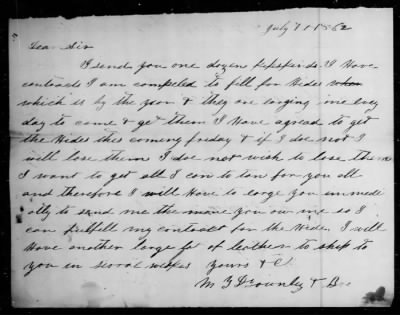 July 11 1862
Dear Sir
I send you one dozen I have
contracts I am compeled to fill for Hides
which is by the year & they are urging me every
day to come & get them I have agreed to get
the Hides this coming friday & if I doe not I
will lose them I doe not wish to lose them
I want to get all I can to tan for you all
and therefore I will have to earge you immedi
atly to send me the mone you ow me so I
can fulfill my contract for the Hide. I will
Have another large lot of leather to ship to
you in several weekes Yours & C
M & Bro